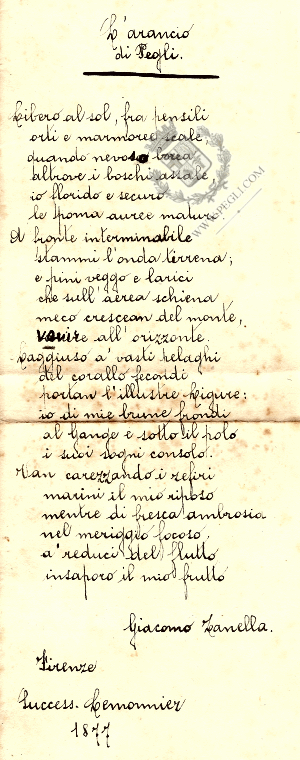 L'arancio
di Pegli.
Libero al sol, fra pensili
orti e marmoree scale,
quando nevoso borea
altrove i boschi assale,
io florido e securo
le poma auree maturo.
A fronte interminabile
stammi l'onda terrena;
e pini veggo e larici
che sull'aerea schiena
meco crescean del monte,
venire all'orizzonte.
Laggiuso a' vasti pelaghi
del corallo fecondi
portan l'illustre Ligure:
io di mie brune frondi
al Gange e sotto il polo
i suoi sogni consolo.
Van carezzando i zefiri
marini il mio riposo
mentre di fresca ambrosia
nel meriggio focoso,
a' reduci del flutto
insaporo il mio frutto
Giacomo Zanella.
Firenze
Success. Lemonnier
1877
WWW.ISPEGLI.COM